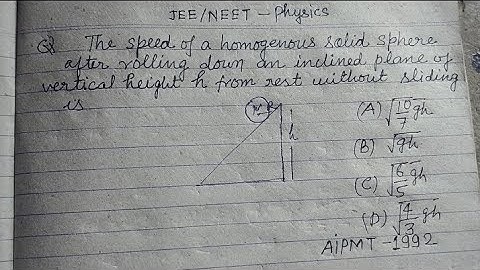 JEE/NEET - Physics
Q The speed of a homogenous solid sphere
after rolling down an inclined plane of
vertical height h from rest without sliding
is
h
(A) √10/7 gh
(B) √gh
(C) √6/5 gh
(D) √4/3 gh
AiPMT - 1992